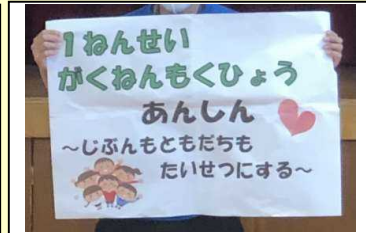 1ねんせい
がくねんもくひょう
あんしん
~じぶんもともだちも
たいせつにする~